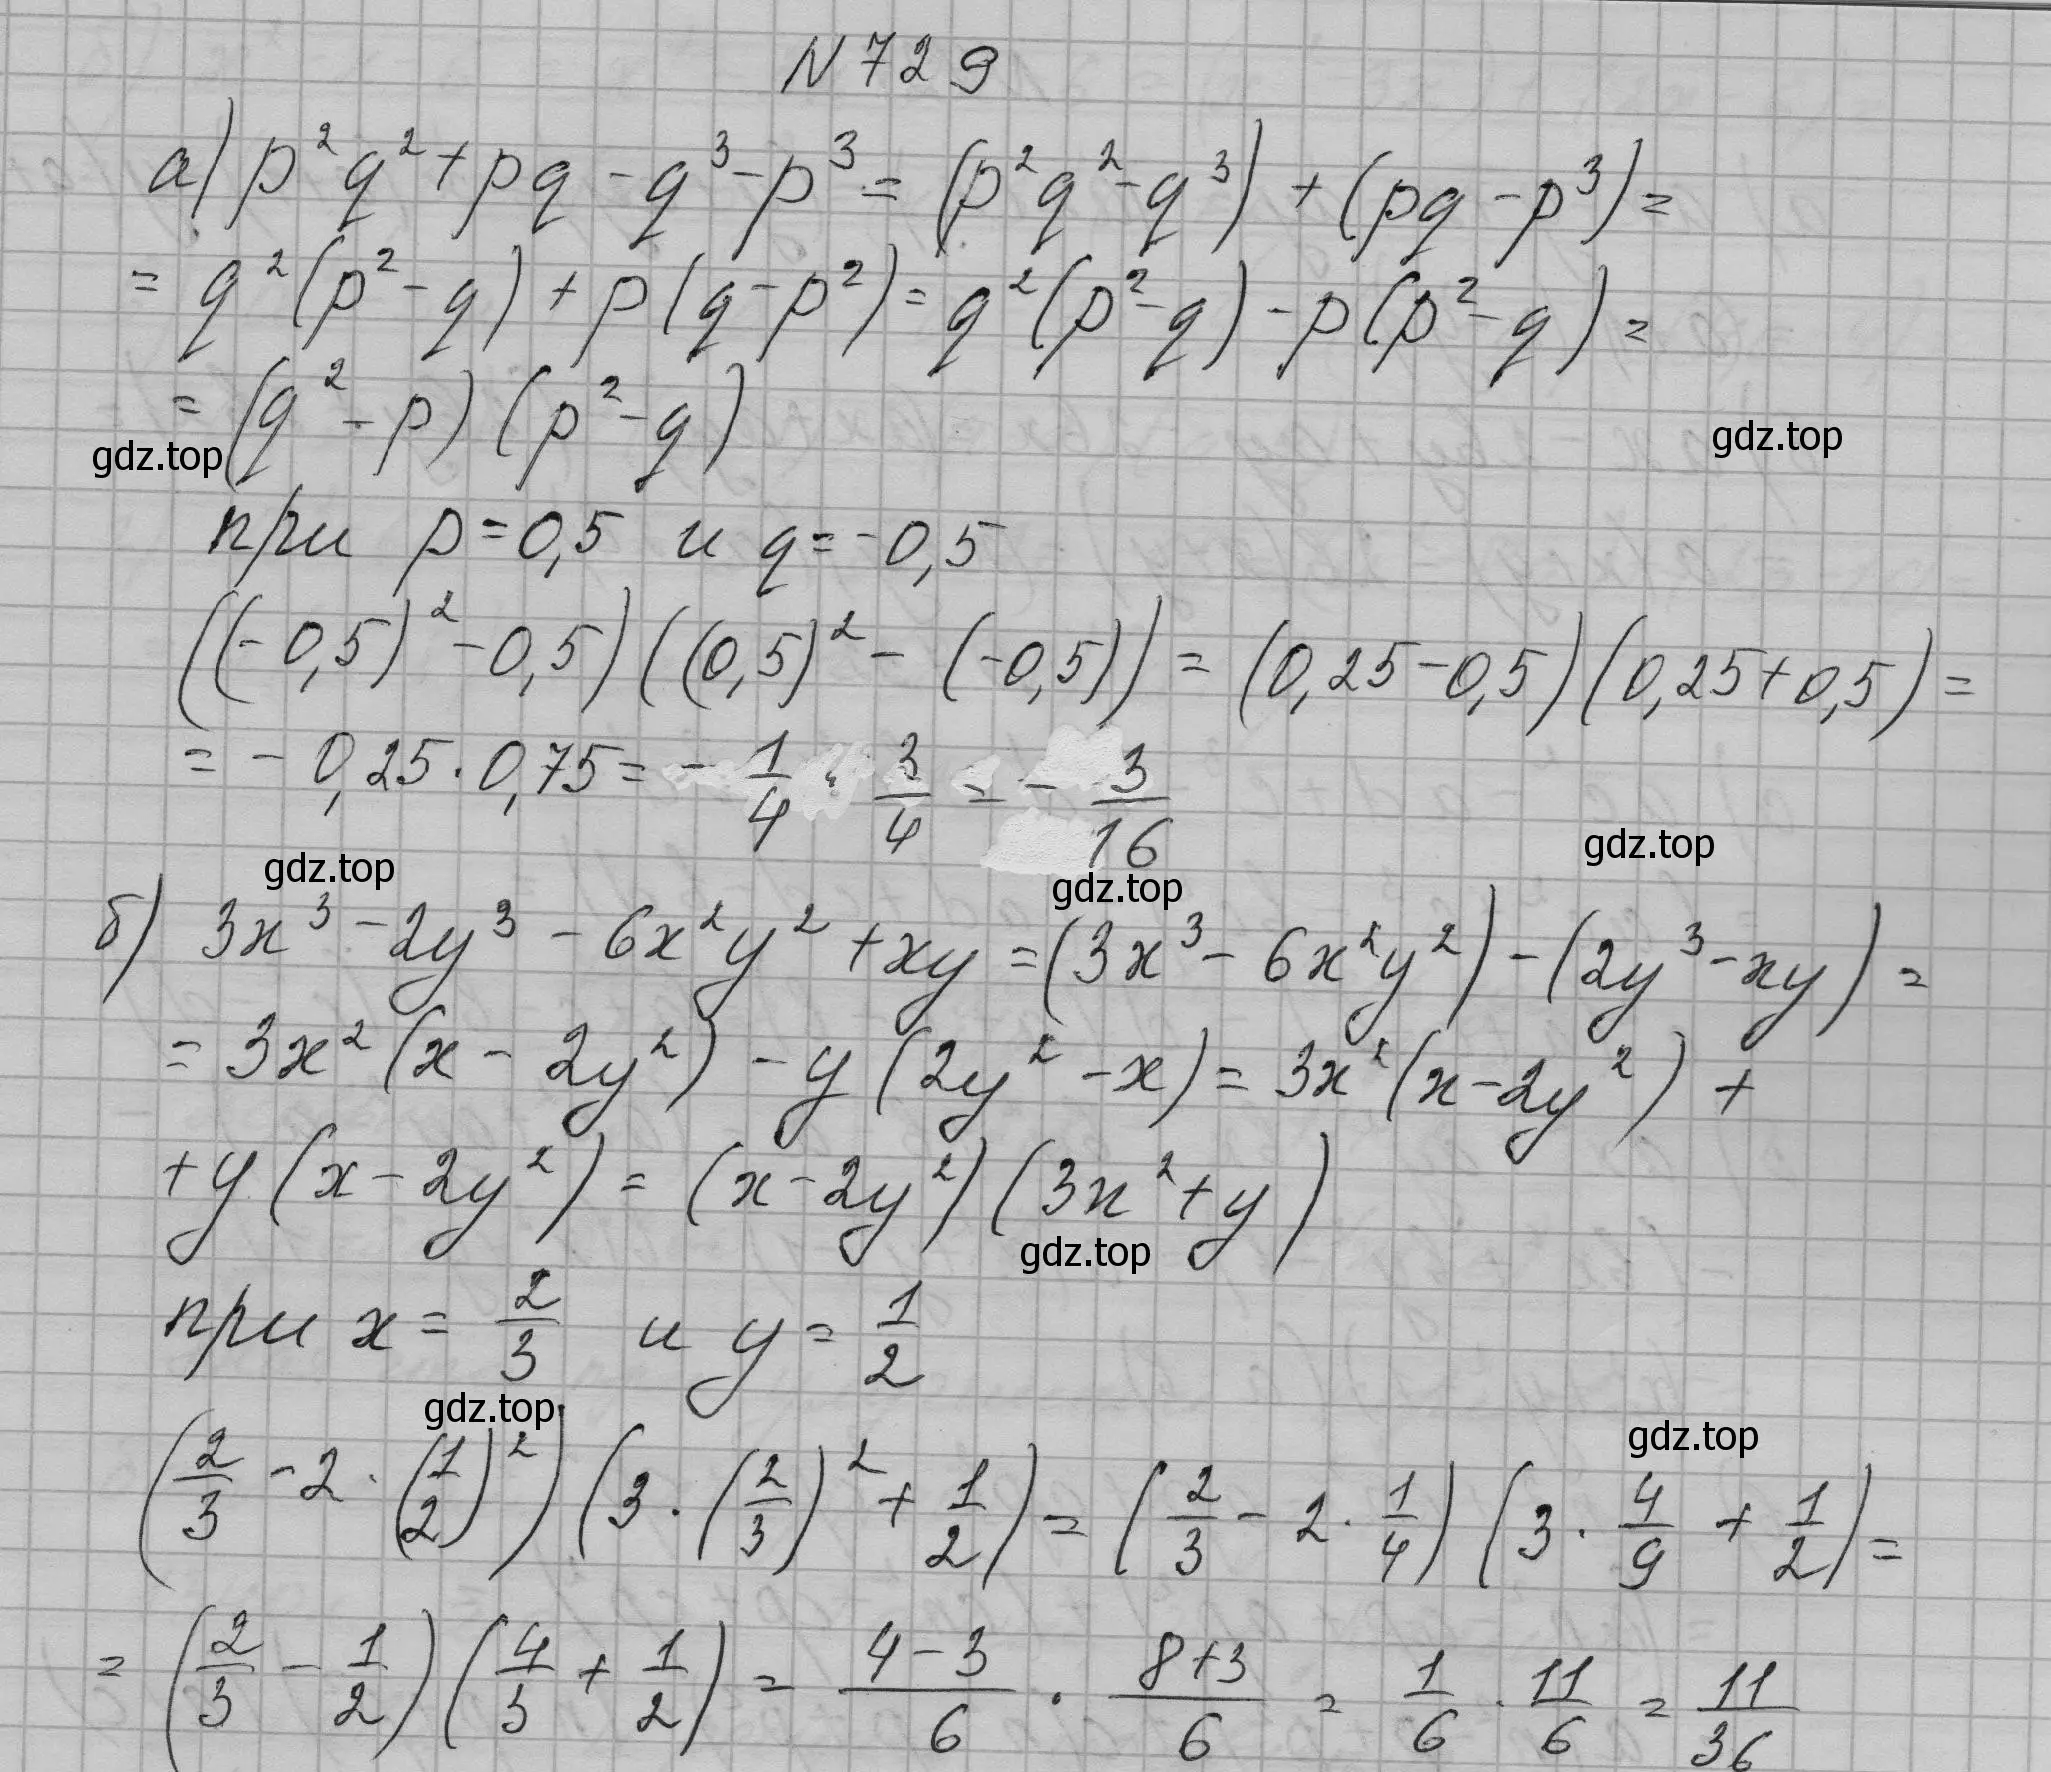 N 729
а) p²q² + pq - q³ - p³ = (p²q² - q³) + (pq - p³) =
= q²(p² - q) + p(q - p²) = q²(p² - q) - p(p² - q) =
= (q² - p)(p² - q)
gdz.top
gdz.top
при p = 0,5 и q = -0,5
((-0,5)² - 0,5)((0,5)² - (-0,5)) = (0,25 - 0,5)(0,25 + 0,5) =
= - 0,25 · 0,75 = - 1/4 · 3/4 = - 3/16
gdz.top
gdz.top
gdz.top
б) 3x³ - 2y³ - 6x²y² + xy = (3x³ - 6x²y²) - (2y³ - xy) =
= 3x²(x - 2y²) - y(2y² - x) = 3x²(x - 2y²) +
+ y(x - 2y²) = (x - 2y²)(3x² + y)
gdz.top
при x = 2/3 и y = 1/2
gdz.top
gdz.top
(2/3 - 2 · (1/2)²)(3 · (2/3)² + 1/2) = (2/3 - 2 · 1/4)(3 · 4/9 + 1/2) =
= (2/3 - 1/2)(4/3 + 1/2) = (4 - 3)/6 · (8 + 3)/6 = 1/6 · 11/6 = 11/36